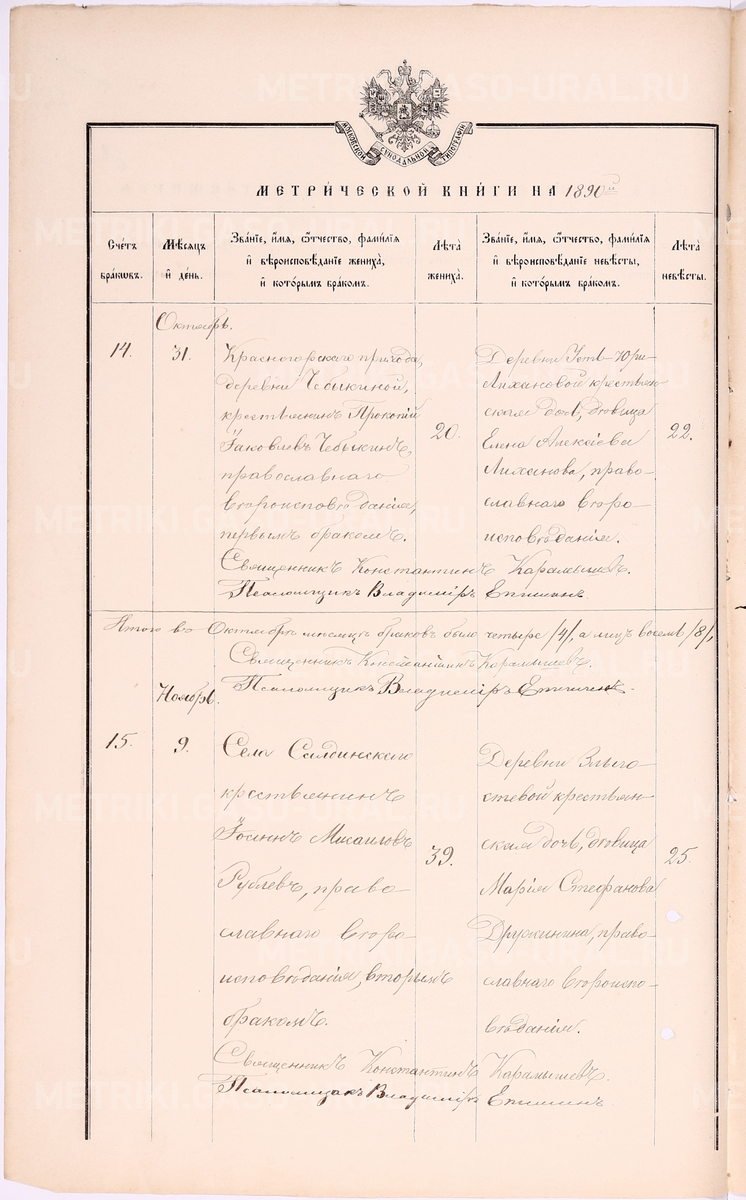 METRIKI.GASO-URAL.RU
МОСКОВСКОЙ СѴНОДАЛЬНОЙ ТИПОГРАФІИ
МЕТРИ́ЧЕСКОЙ КНИ́ГИ НА 1890й
Сче́тъ бра́кѡвъ.
Мѣ́сяцъ й де́нь.
Зва́нїе, и́мя, ѻ҆́тчество, фами́лїя й вѣроисповѣ́данїе жениха̀, й кото́рымъ бра́комъ.
Лѣ́та жениха̀.
Зва́нїе, и́мя, ѻ҆́тчество, фами́лїя й вѣроисповѣ́данїе невѣ́сты, й кото́рымъ бра́комъ.
Лѣ́та невѣ́сты.
Октябрь.
14.
31.
Красногорскаго прихода,
деревни Чебыкиной,
крестьянинъ Прокопій
Іаковлевъ Чебыкинъ,
православнаго
вѣроисповѣданія,
первымъ бракомъ.
20.
Деревни Усть-Юри-
Лихановой крестьян-
ская дочь, дѣвица
Елена Алексіева
Лиханова, право-
славнаго вѣро-
исповѣданія.
22.
Священникъ Константинъ Карамышевъ.
Псаломщикъ Владиміръ Епишинъ.
Итого въ Октябрѣ мѣсяцѣ браковъ было четыре /4/, а лицъ восемь /8/,
Священникъ Константинъ Карамышевъ.
Псаломщикъ Владиміръ Епишинъ.
Ноябрь.
15.
9.
Села Салдинскаго
крестьянинъ
Іоаннъ Мисаиловъ
Рублевъ, право-
славнаго вѣро-
исповѣданія, вторымъ
бракомъ.
39.
Деревни Злыго-
стевой крестьян-
ская дочь, дѣвица
Марія Стефанова
Дружинина, право-
славнаго вѣроиспо-
вѣданія.
25.
Священникъ Константинъ Карамышевъ.
Псаломщикъ Владиміръ Епишинъ.